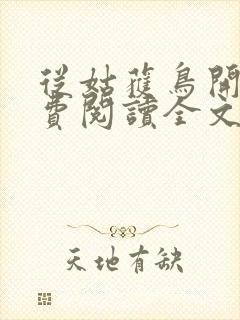 從姑蒦鳥開
費閱讀全文
天地有缺